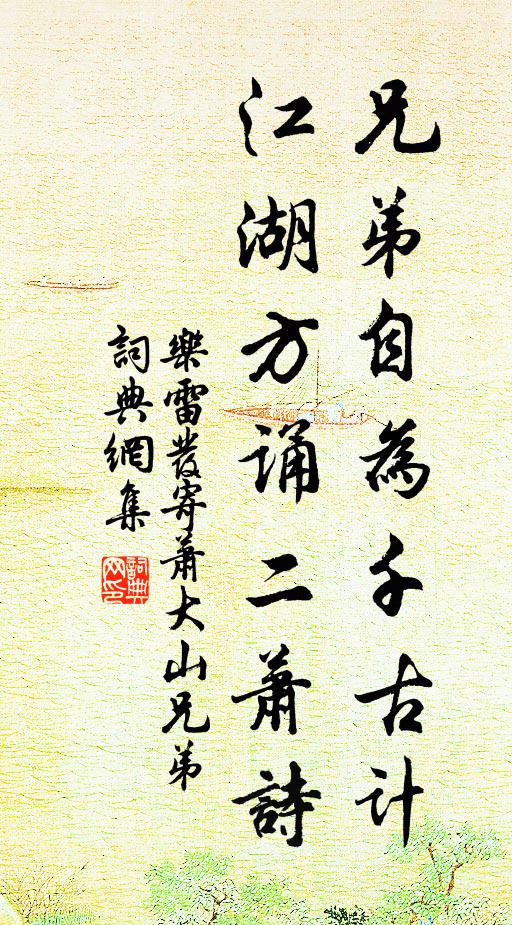 兄弟自為千古計
江湖方诵二蕭詩
樂雷發寄蕭大山兄弟
詞典網集
詞典网印